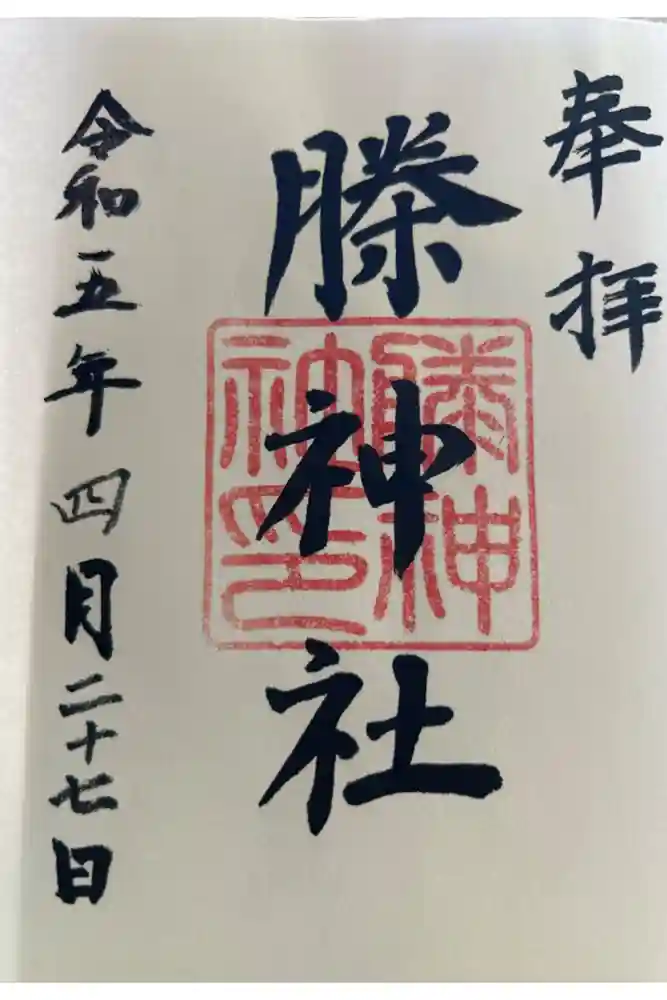 奉拝
榺神社
榺神
社印
令和五年四月二十七日